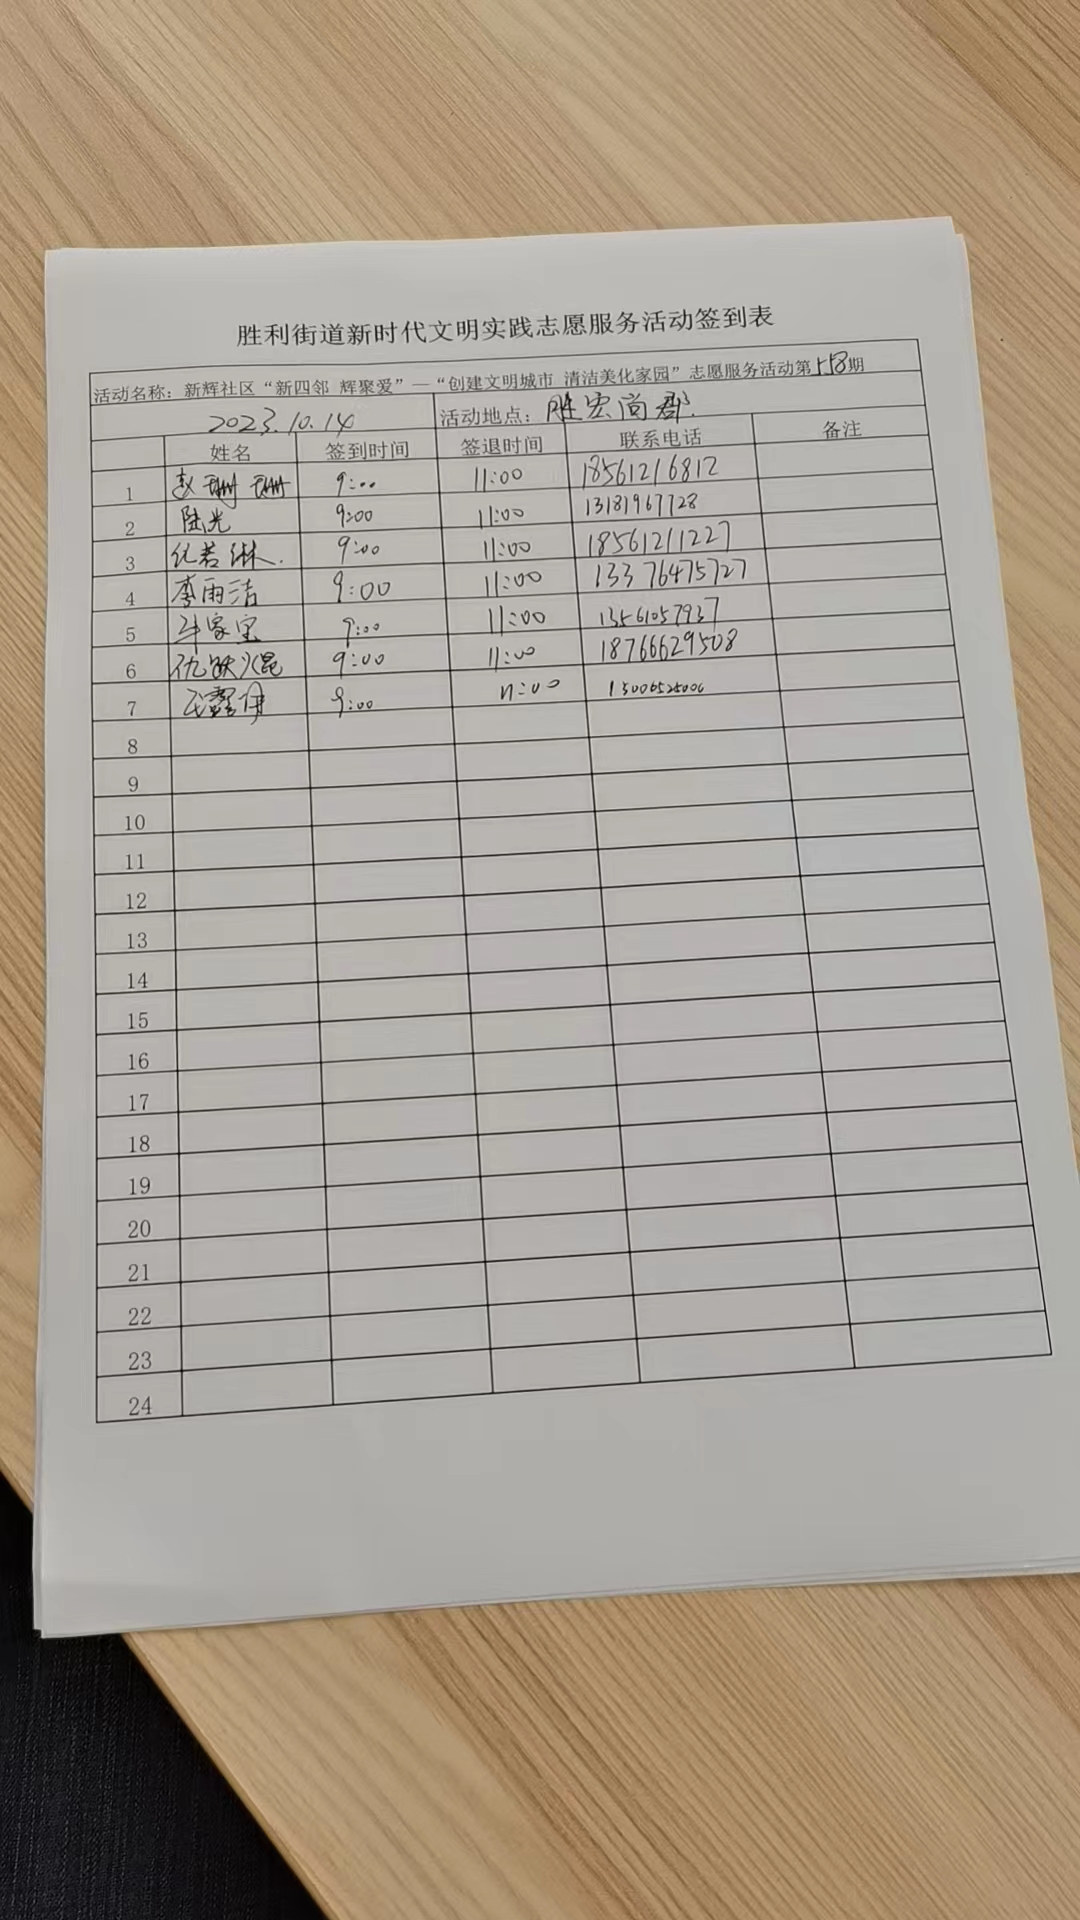 胜利街道新时代文明实践志愿服务活动签到表
活动名称：新辉社区“新四邻 辉聚爱”—“创建文明城市 清洁美化家园”志愿服务活动第158期
2023.10.14 活动地点：胜宏尚郡
姓名 签到时间 签退时间 联系电话 备注
1 赵珊珊 9:00 11:00 18561216812
2 陆光 9:00 11:00 13181967728
3 纪若琳. 9:00 11:00 18561211227
4 李雨洁 9:00 11:00 13376475727
5 家宝 9:00 11:00 13561057937
6 仇 9:00 11:00 18766629508
7 9:00 11:00
8
9
10
11
12
13
14
15
16
17
18
19
20
21
22
23
24